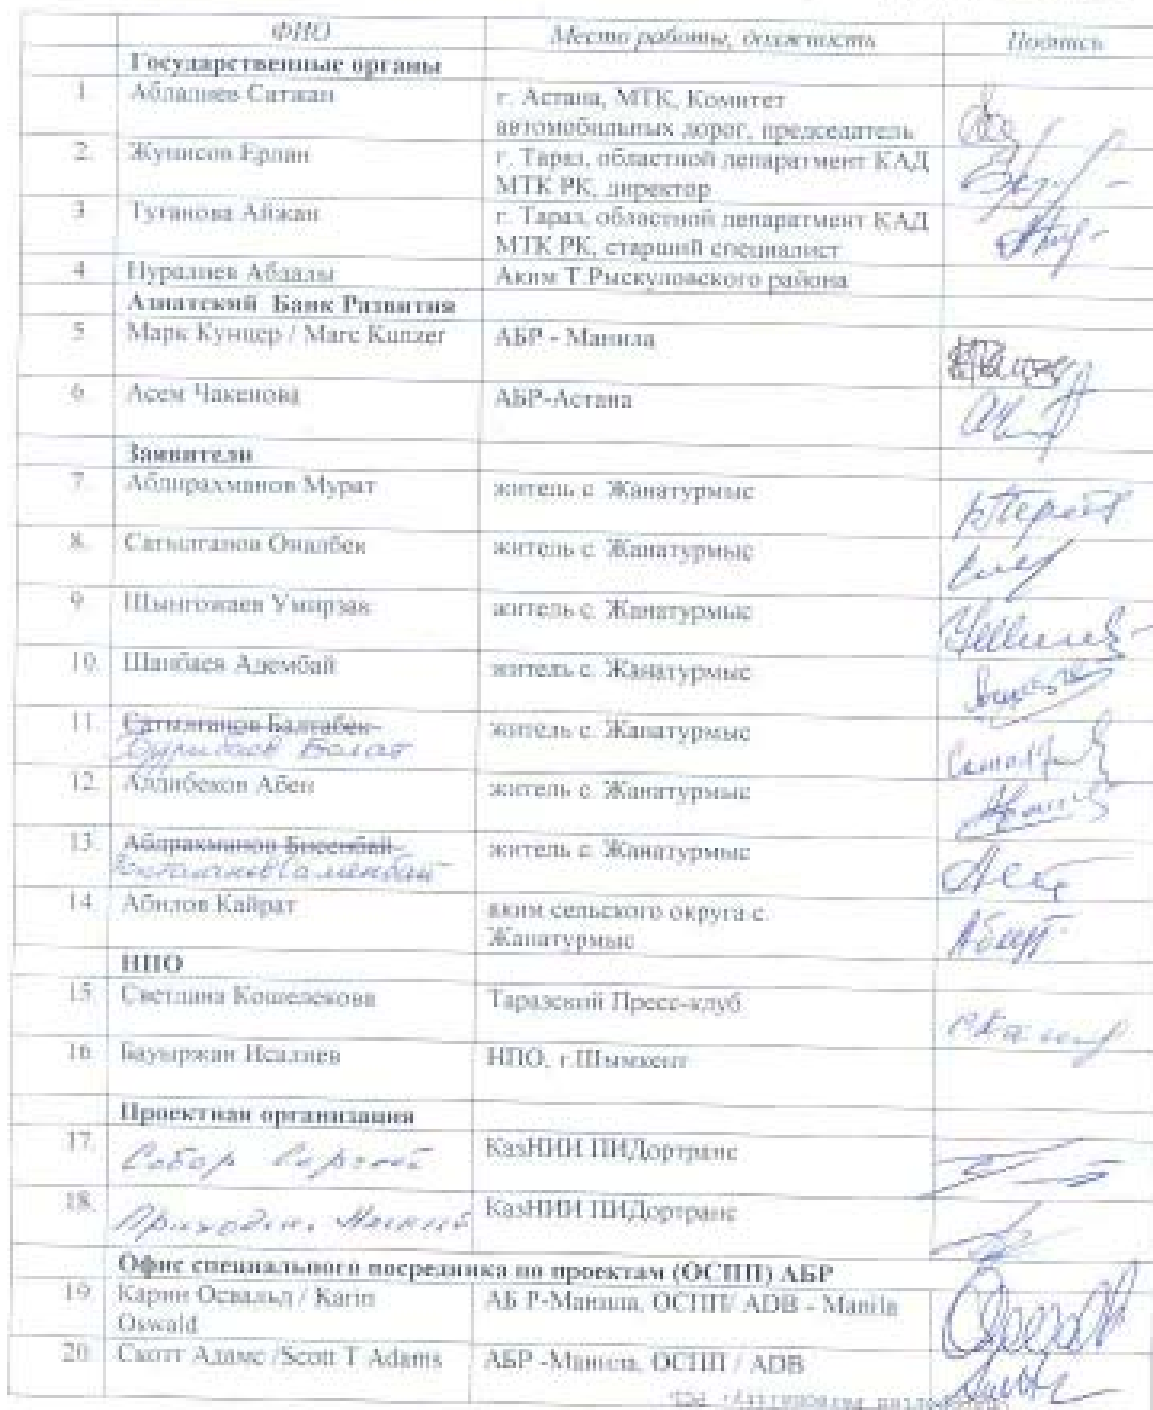 ФИО Место работы, должность Подпись
Государственные органы
1. Аблалиев Сатжан г. Астана, МТК, Комитет
автомобильных дорог, председатель
2. Жунисов Ерлан г. Тараз, областной депаратмент КАД
МТК РК, директор
3. Туганова Айжан г. Тараз, областной депаратмент КАД
МТК РК, старший специалист
4. Нуралиев Абдалы Аким Т.Рыскуловского района
Азиатский Банк Развития
5. Марк Кунцер / Marc Kunzer АБР - Манила
6. Асем Чакенова АБР-Астана
Заявители
7. Абдирахманов Мурат житель с. Жанатурмыс
8. Сатылганов Оналбек житель с. Жанатурмыс
9. Умирзак житель с. Жанатурмыс
10. Шанбаев Адембай житель с. Жанатурмыс
11. Сатылганов Балтабек житель с. Жанатурмыс
Болат
12. Алдибеков Абен житель с. Жанатурмыс
13. Абдрахманов Бисенбай житель с. Жанатурмыс
14. Абилов Кайрат аким сельского округа с.
Жанатурмыс
НПО
15. Светлана Кошелекова Таразский Пресс-клуб
16. Бауыржан Исалиев НПО, г.Шымкент
Проектная организация
17. Собор Сергей КазНИИ ПИДортранс
18. КазНИИ ПИДортранс
Офис специального посредника по проектам (ОСПП) АБР
19. Карин Освальд / Karin АБ Р-Манила, ОСПП/ ADB - Manila
Oswald
20. Скотт Адамс /Scott T Adams АБР -Манила, ОСПП / ADB